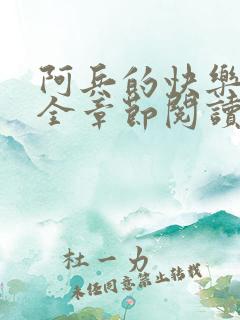 阿兵的快樂
全章節閱讀
杜一力
未经同意禁止转载